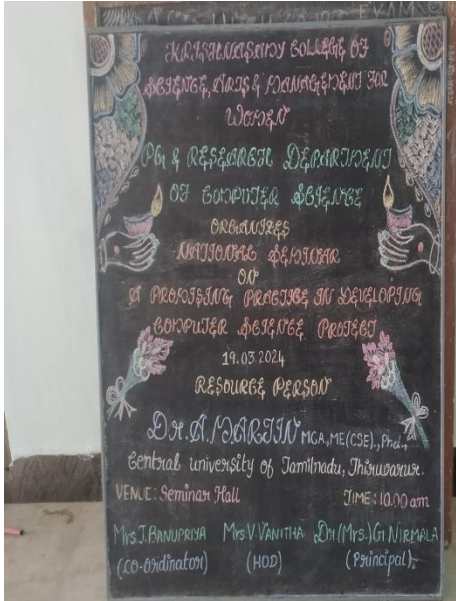 EXAMS
KRISHNASAMY COLLEGE OF
SCIENCE, ARTS & MANAGEMENT FOR
WOMEN
PG & RESEARCH DEPARTMENT
OF COMPUTER SCIENCE
ORGANIZES
NATIONAL SEMINAR
ON
A PROMISING PRACTICE IN DEVELOPING
COMPUTER SCIENCE PROJECT
19.03.2024
RESOURCE PERSON
Dr. A. MARTIN MCA, ME(CSE)., Phd.,
Central university of Tamilnadu, Thiruvarur.
VENUE: Seminar Hall TIME: 10.00 am
Mrs. J. BANUPRIYA Mrs. V. VANITHA Dr. (Mrs.) G. NIRMALA
(co-ordinator) (HOD) (Principal)